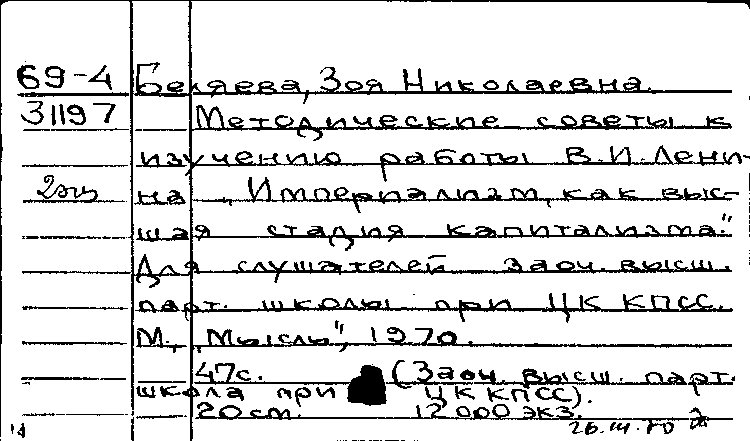 69-4 Беляева, Зоя Николаевна.
31197 Методические советы к
изучению работы В.И.Лени-
2экз на „Империализм, как выс-
шая стадия капитализма."
Для слушателей заоч. высш.
парт. школы при ЦК КПСС.
М., „Мысль", 1970.
47с. (Заоч. высш. парт.
школа при ЦК КПСС).
20 см. 12 000 экз.
14 26.III.70